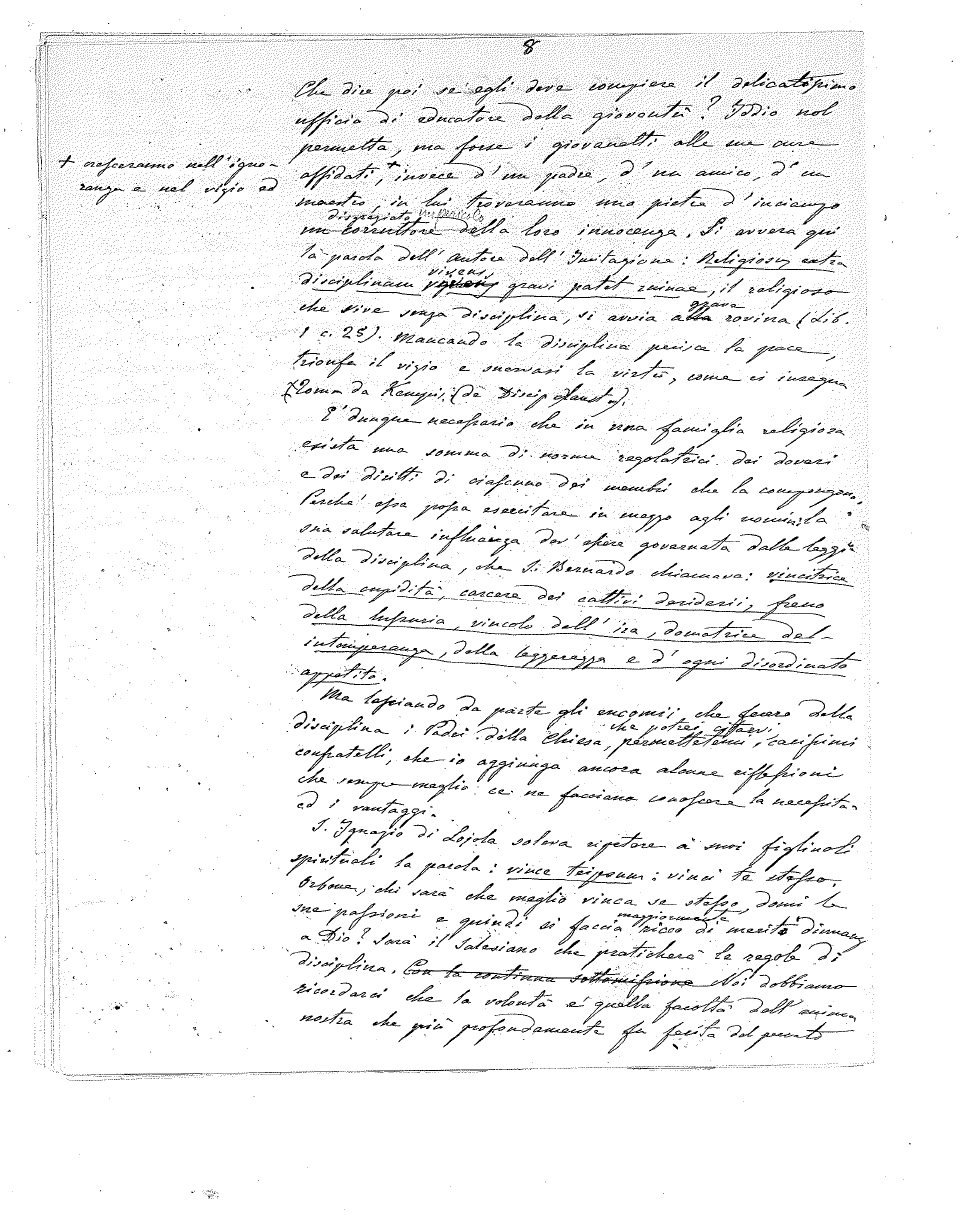 8
Che dire poi se egli deve compiere il delicatissimo
ufficio di educatore della gioventù? Iddio nol
permetta, ma forse i giovanetti alle sue cure
+ cresceranno nell'igno-
ranza e nel vizio ed
affidati,+ invece d'un padre, d'un amico, d'un
maestro, in lui troveranno una pietra d'inciampo
disgraziato un pericolo
un corruttore della loro innocenza. Si avvera qui
la parola dell'autore dell'Imitazione: Religiosus extra
vivens
disciplinam gravi patet ruinae, il religioso
grave
che vive senza disciplina, si avvia alla rovina (Lib.
1 c. 25). Mancando la disciplina perisce la pace,
trionfa il vizio e snervasi la virtù, come ci insegna
Toma da Kempis, (de Discip. Claustr.).
E' dunque necessario che in una famiglia religiosa
esista una somma di norme regolatrici dei doveri
e dei diritti di ciascuno dei membri che la compongono.
Perchè essa possa esercitare in mezzo agli uomini la
sua salutare influenza dev'essere governata dalle leggi
della disciplina, che S. Bernardo chiamava: vincitrice
della cupidità, carcere dei cattivi desiderii, freno
della lussuria, vincolo dell'ira, domatrice del-
intemperanza, della leggerezza e d'ogni disordinato
appetito.
Ma lasciando da parte gli encomii che fecero della
che potrei citarvi
disciplina i Padri della Chiesa, permettetemi, carissimi
confratelli, che io aggiunga ancora alcune riflessioni
che sempre meglio ce ne facciano conoscere la necessità
ed i vantaggi.
S. Ignazio di Lojola soleva ripetere a' suoi figliuoli
spirituali la parola: vince teipsum: vinci te stesso.
Orbene, chi sarà che meglio vinca se stesso, domi le
maggiormente
sue passioni e quindi si faccia ricco di meriti dinnanzi
a Dio? Sarà il Salesiano che praticherà le regole di
disciplina. Con la continua sottomissione Noi dobbiamo
ricordarci che la volontà è quella facoltà dell'anima
nostra che più profondamente fu ferita dal peccato